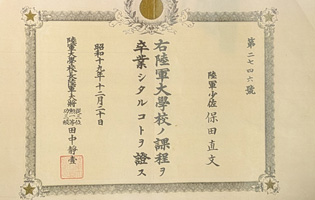 第二七四六號
陸軍少佐 保田直文
右陸軍大學校ノ課程ヲ
卒業シタルコトヲ證ス
昭和十九年十二月二十日
陸軍大學校長陸軍中將
田中靜壹